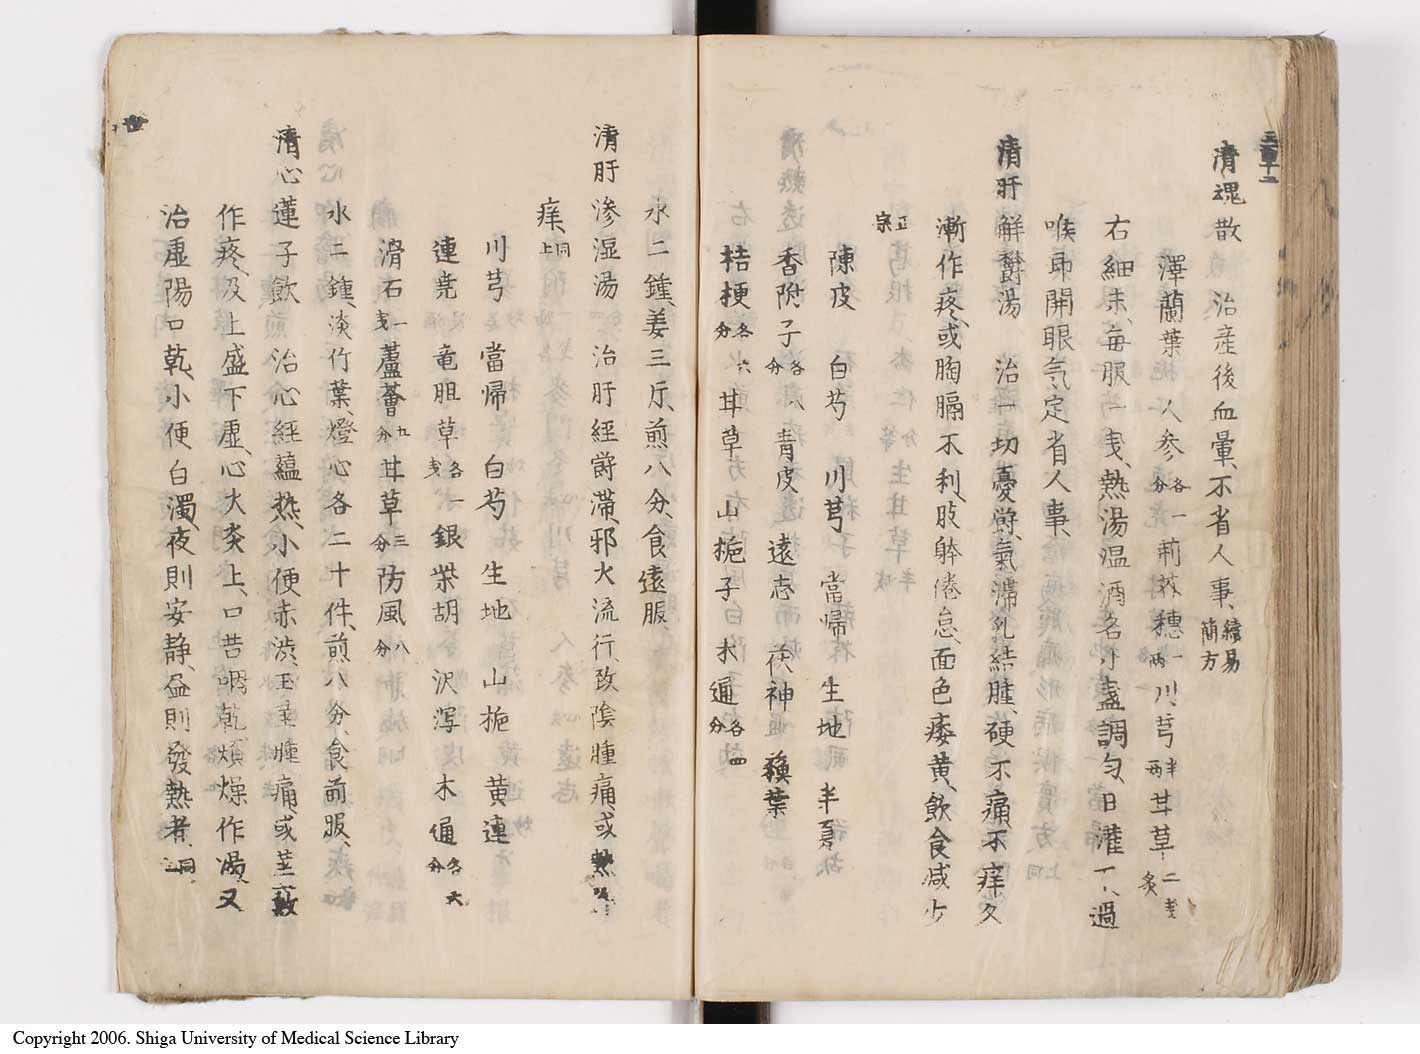 清魂散 治産後血暈、不省人事、續易簡方
澤蘭葉 人参各一分 荊芥穗一両 川芎半両 甘草二戔炙
右細末、毎服一戔、熱湯温酒各小盞調匀、旦灌一、過
喉即開眼気定省人事
清肝解欝湯 治一切憂欝氣滞、乳結腫、硬不痛、不痒、久
漸作疼、或胸膈不利、肢躰倦怠、面色痿黄、飲食减少
正宗
陳皮 白芍 川芎 當帰 生地 半夏
香附子各八分 青皮 遠志 茯神 蘓葉
桔梗各六分 甘草 山梔子 木通各四分
水二鍾、姜三斤、煎八分、食遠服
清肝渗湿湯 治肝経欝滞、邪火流行、致陰腫痛、或熱
痒、同上
川芎 當帰 白芍 生地 山梔 黄連
連尭 竜胆草各一戔 銀柴胡 沢瀉 木通各六分
滑石一戔 蘆薈九分 甘草三分 防風八分
水二鍾、淡竹葉、燈心各二十件、煎八分、食前服、
清心蓮子飲 治心経蘊热、小便赤渋、玉茎腫痛、或茎竅
作疼、及上盛下虚、心火炎上、口苦咽乾、煩燥作渴、又
治虚陽口乾、小便白濁、夜則安静、昼則發熱者、同上
Copyright 2006. Shiga University of Medical Science Library